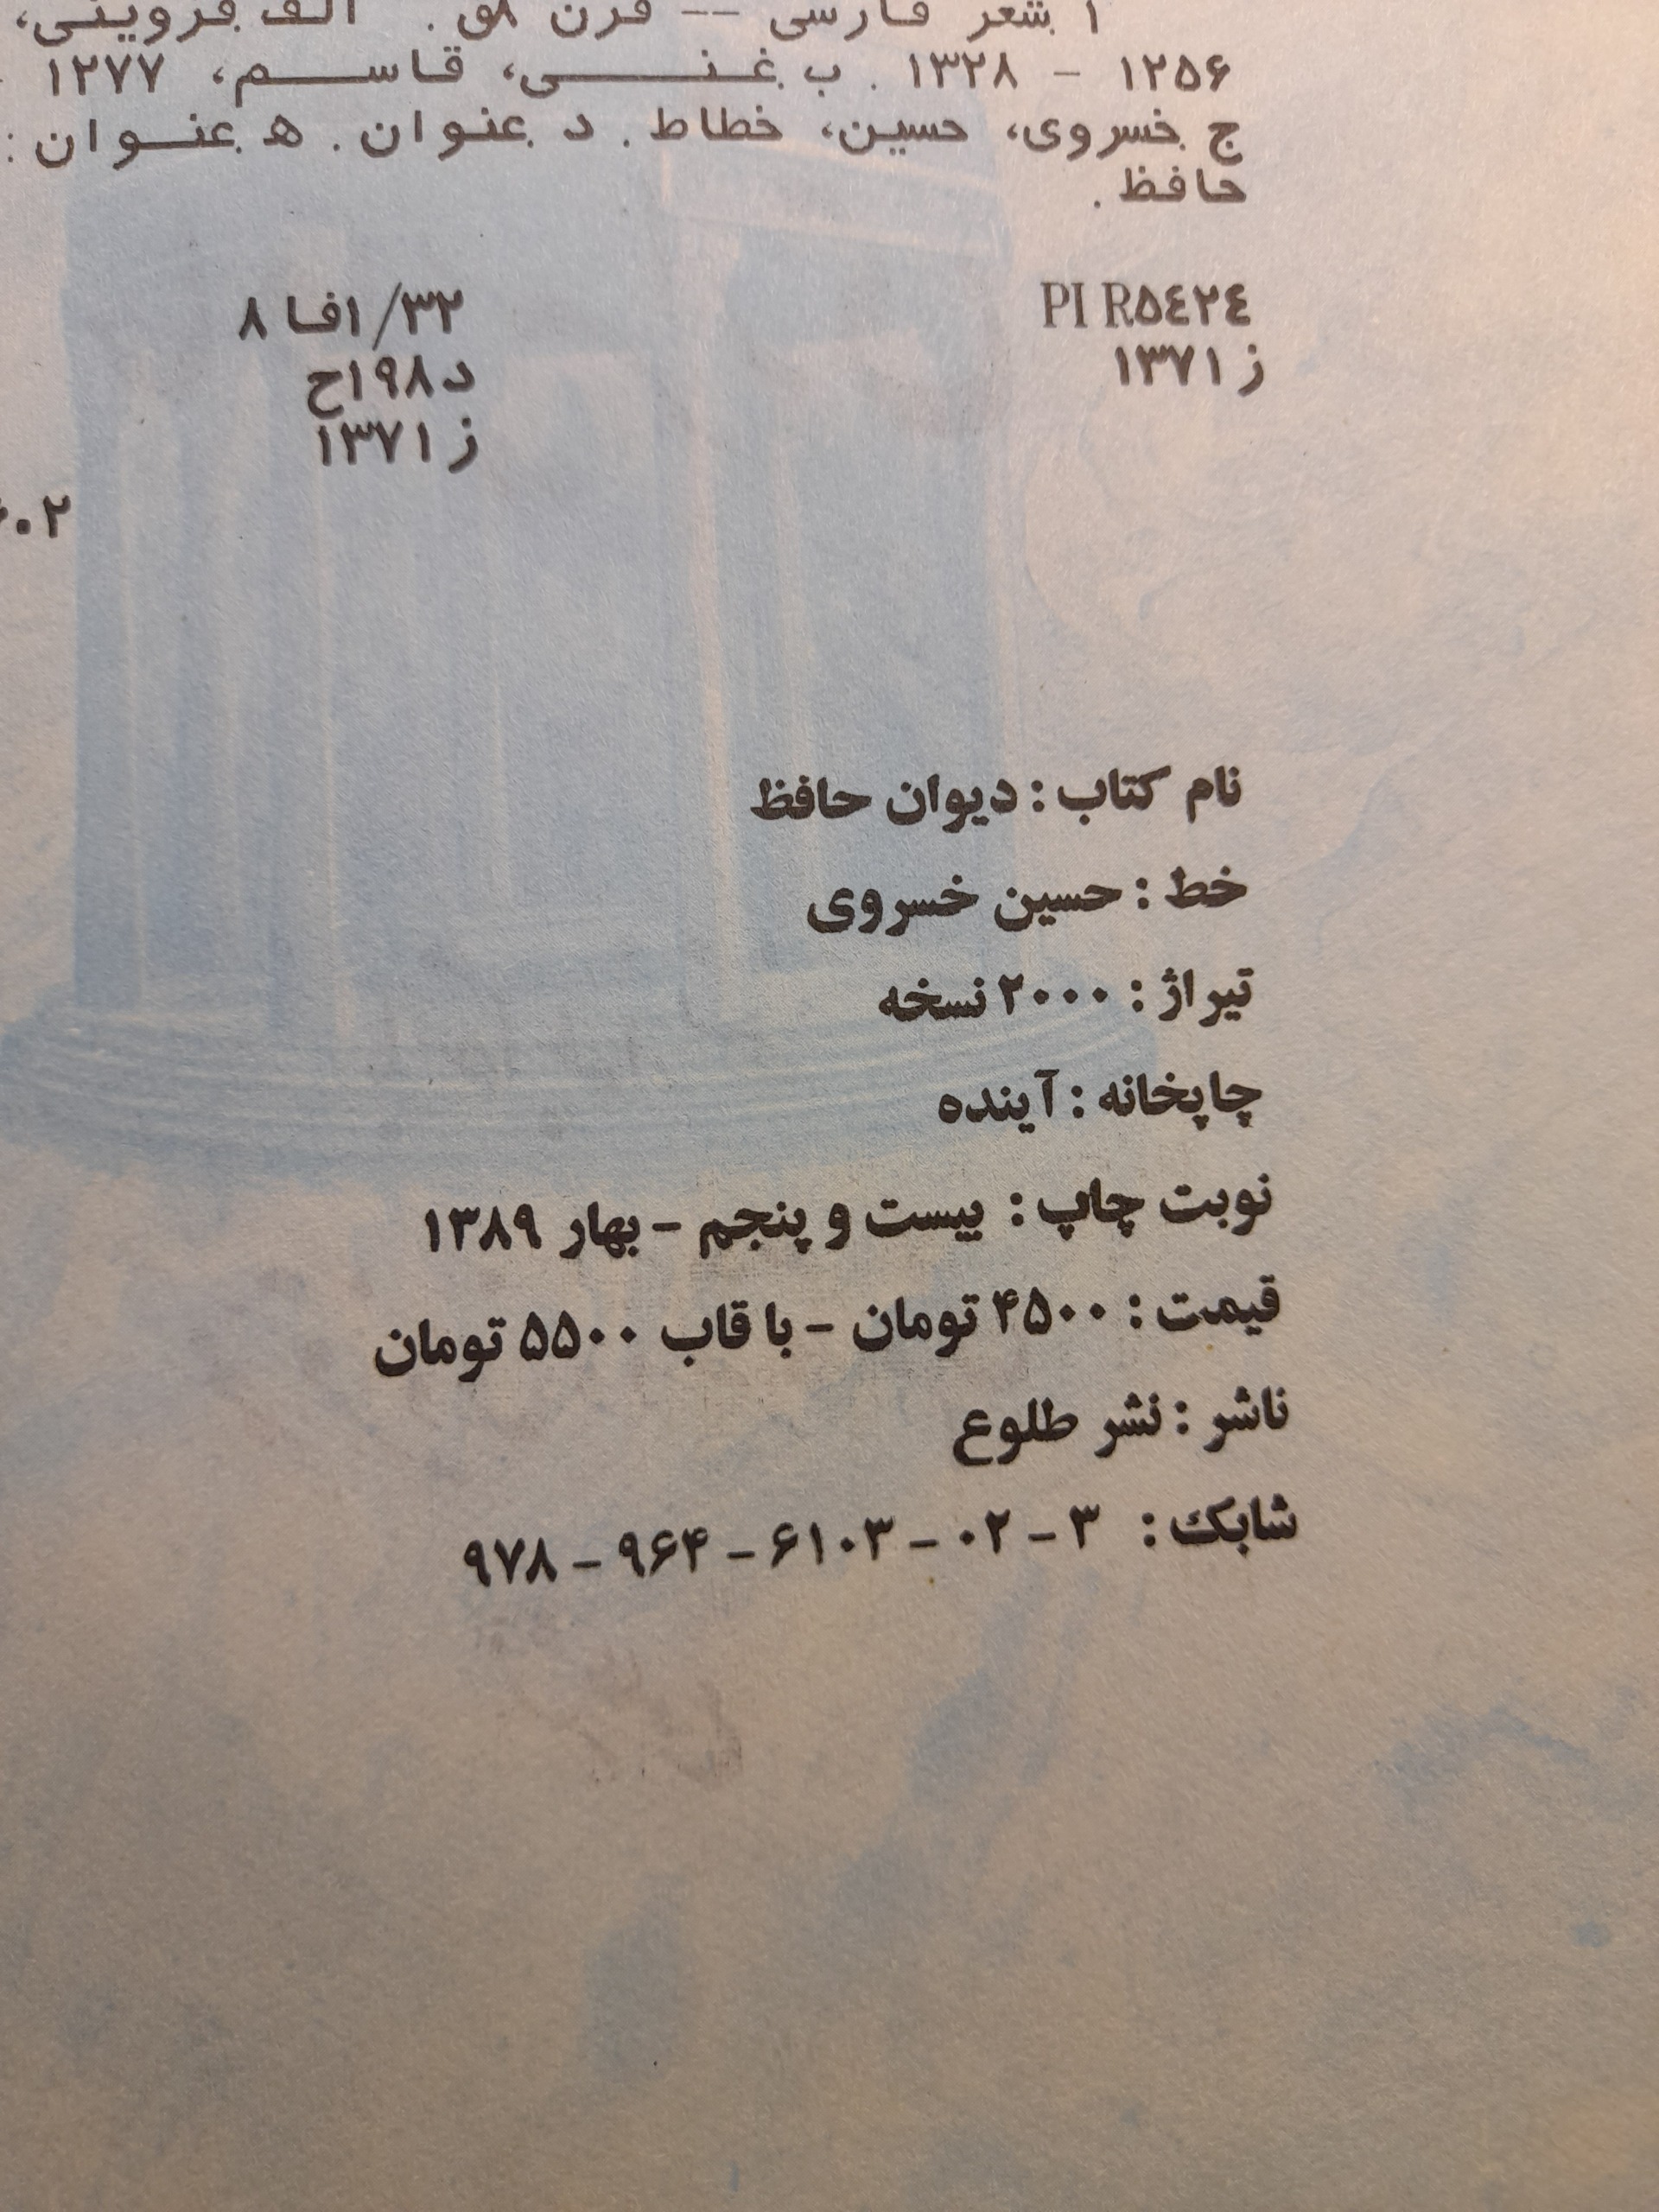 ۱ شعر فارسی -- قرن ۸ق. الف قزوینی،
۱۲۵۶ - ۱۳۲۸. ب غنی، قاسم، ۱۲۷۷
ج خسروی، حسین، خطاط. د عنوان. ه عنوان:
حافظ.
PIR۵٤۲٤ ۸فا۱/۳۲
ز۱۳۷۱ د۱۹۸ح
ز۱۳۷۱
نام کتاب : دیوان حافظ
خط : حسین خسروی
تیراژ : ۲۰۰۰ نسخه
چاپخانه : آینده
نوبت چاپ : بیست و پنجم - بهار ۱۳۸۹
قیمت : ۴۵۰۰ تومان - با قاب ۵۵۰۰ تومان
ناشر : نشر طلوع
شابک : ۳ - ۰۲ - ۶۱۰۳ - ۹۶۴ - ۹۷۸